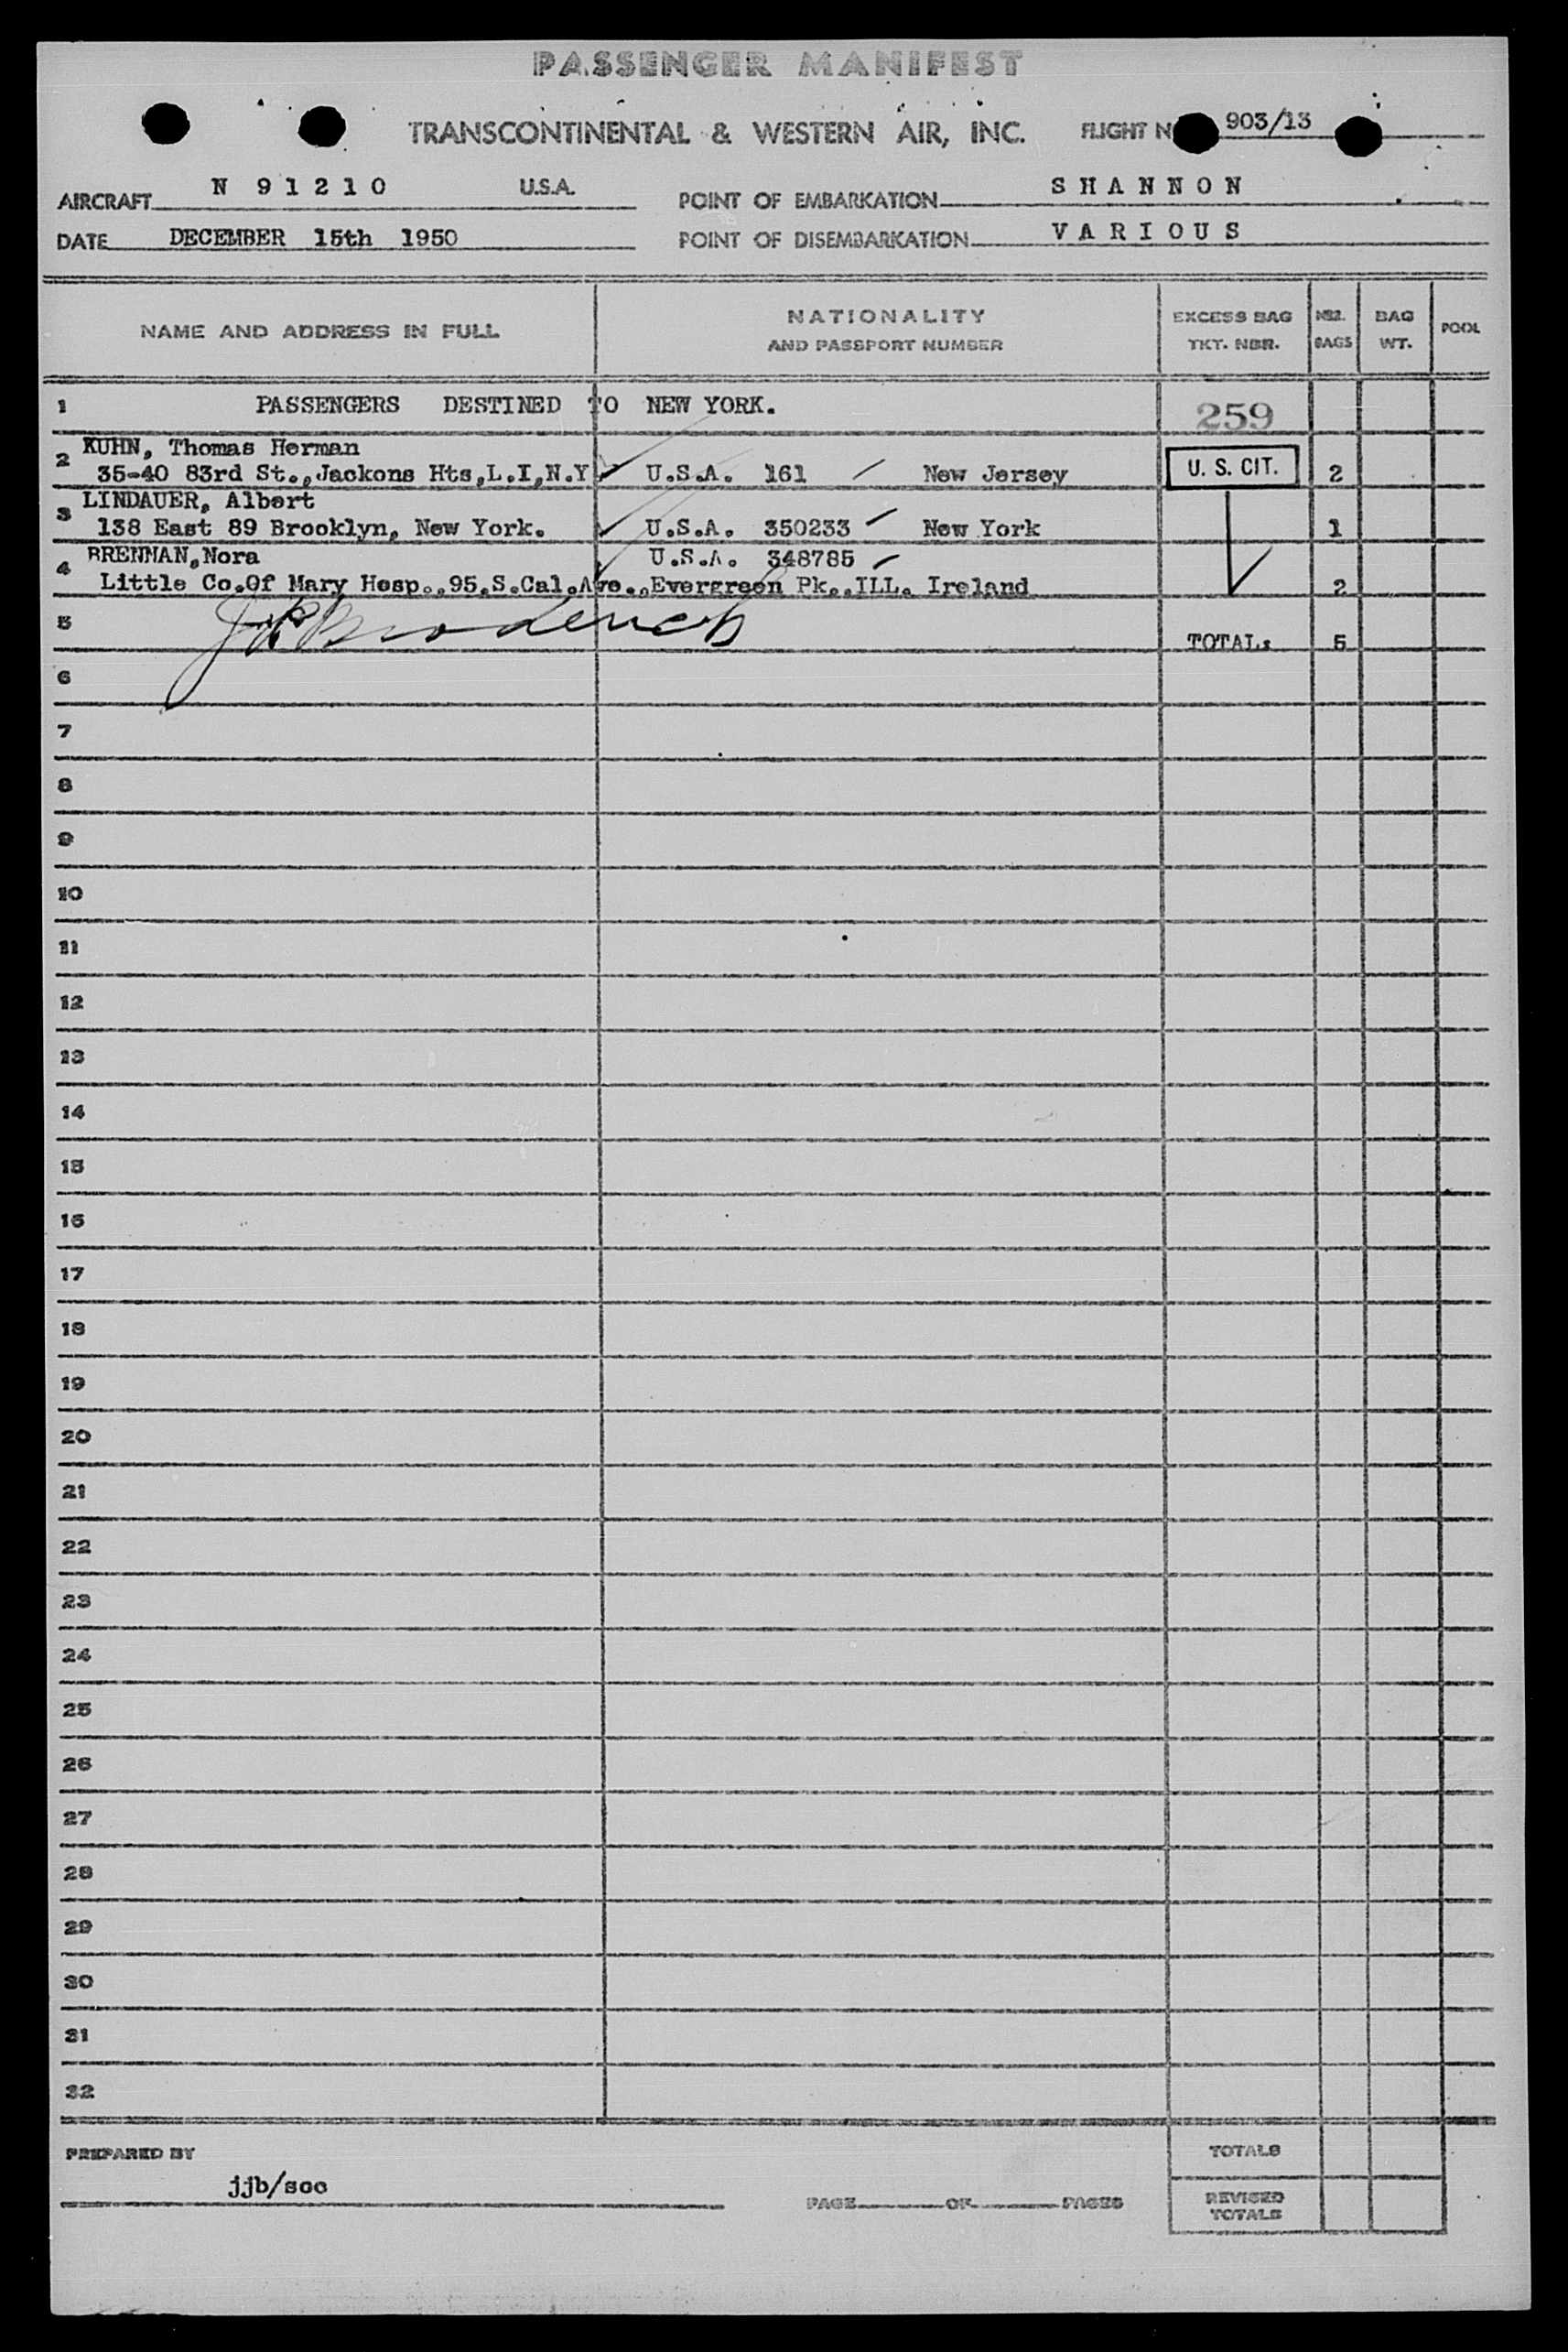 PASSENGER MANIFEST
TRANSCONTINENTAL & WESTERN AIR, INC. FLIGHT N 903/13
AIRCRAFT N 91210 U.S.A. POINT OF EMBARKATION SHANNON
DATE DECEMBER 15th 1950 POINT OF DISEMBARKATION VARIOUS
NAME AND ADDRESS IN FULL NATIONALITY AND PASSPORT NUMBER EXCESS BAG TKT. NBR. NBR. BAGS BAG WT. POOL
1 PASSENGERS DESTINED TO NEW YORK. 259
2 KUHN, Thomas Herman
35-40 83rd St.,Jackons Hts,L.I,N.Y U.S.A. 161 New Jersey U. S. CIT. 2
3 LINDAUER, Albert
138 East 89 Brooklyn, New York. U.S.A. 350233 New York 1
4 BRENNAN,Nora U.S.A. 348785
Little Co.Of Mary Hosp..95.S.Cal.Ave.,Evergreen Pk..ILL. Ireland 2
5 TOTAL: 5
6
7
8
9
10
11
12
13
14
15
16
17
18
19
20
21
22
23
24
25
26
27
28
29
30
31
32
PREPARED BY TOTALS
jjb/soc
PAGE OF PAGES REVISED TOTALS